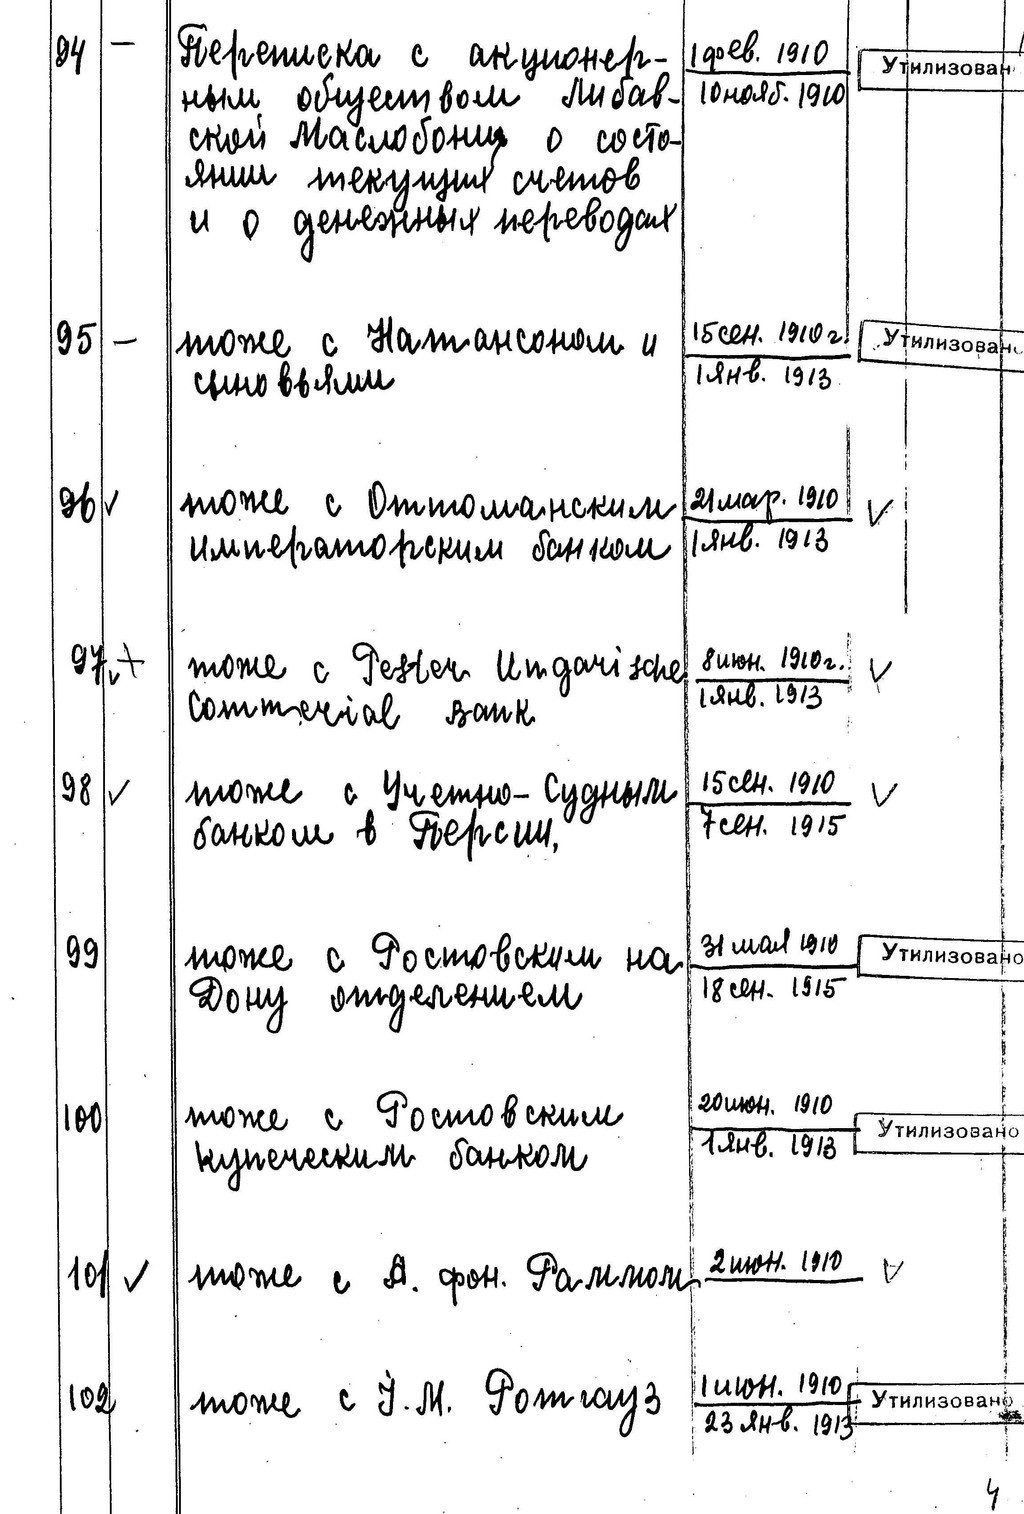 94 — Переписка с акционер- 1 фев. 1910 Утилизован
ным обществом Либав- 10 нояб. 1910
ской Маслобони о состо-
янии текущих счетов
и о денежных переводах
95 — тоже с Натансоном и 15 сен. 1910 г. Утилизовано
сыновьями 1 янв. 1913
96 ✓ тоже с Оттоманским 21 мар. 1910 ✓
императорским банком 1 янв. 1913
97 ✓ + тоже с Pester Ungarische 8 июн. 1910 г. ✓
Commercial Bank 1 янв. 1913
98 ✓ тоже с Учетно-Судным 15 сен. 1910 ✓
банком в Персии, 7 сен. 1915
99 тоже с Ростовским на 31 мая 1910 Утилизовано
Дону отделением 18 сен. 1915
100 тоже с Ростовским 20 июн. 1910 Утилизовано
купеческим банком 1 янв. 1913
101 ✓ тоже с А. фон. Раммом 2 июн. 1910 ✓
102 тоже с Г. М. Ротгауз 1 июн. 1910 Утилизовано
23 янв. 1913
4